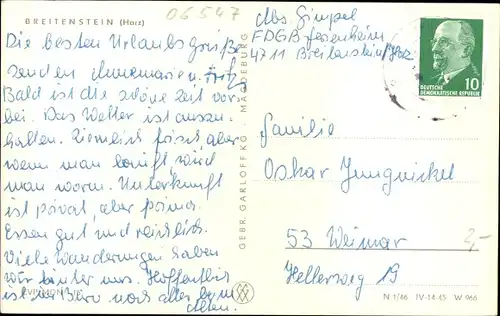 BREITENSTEIN (Harz)
06547
Die besten Urlaubsgrüße
senden Annemarie u. Fritz
Bald ist die schöne Zeit vor-
bei. Das Wetter ist auszu-
halten. Ziemlich frisch aber
wenn man läuft wird
man warm. Unterkunft
ist privat, aber prima.
Essen gut und reichlich.
Viele Wanderungen haben
wir hinter uns. Hoffentlich
ist im Büro noch alles beim
alten.
GEBR. GARLOFF KG, MAGDEBURG
Abs. Gimpel
FDGB Ferienheim
4711 Breitenstein/Harz
DEUTSCHE
DEMOKRATISCHE REPUBLIK
10
Familie
Oskar Jungnickel
53 Weimar
Hellerweg 19
2,-
N 1/46 IV-14-45 W 966